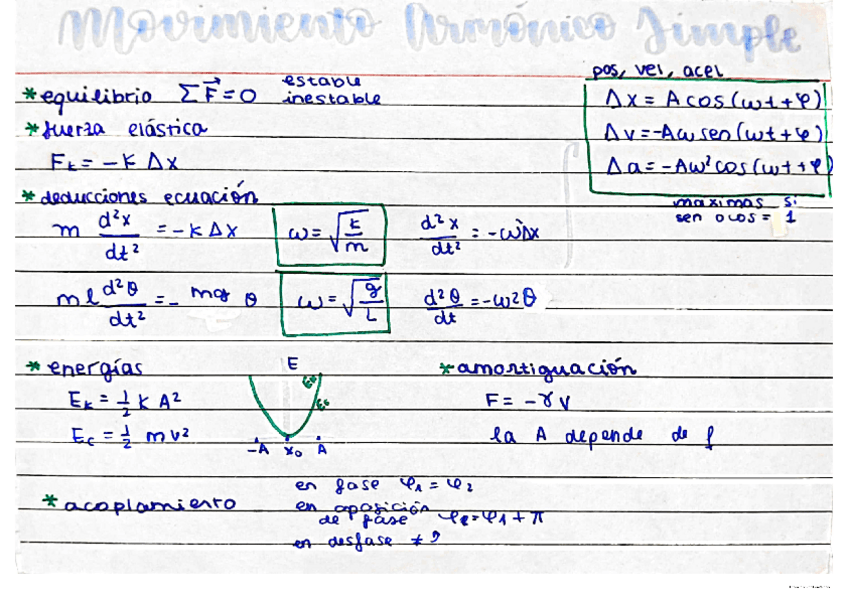 Movimiento Armónico Simple
*equilibrio ΣF⃗=0 estable
inestable
*fuerza elástica
Fk = -K Δx
pos, vel, acel
Δx = A cos(ωt+φ)
Δv = -Aω sen(ωt+φ)
Δa = -Aω² cos(ωt+φ)
maximos si
sen o cos = 1
*deducciones ecuación
m d²x/dt² = -K Δx ω = √(k/m) d²x/dt² = -ω²Δx
ml d²θ/dt² = - mg θ ω = √(g/L) d²θ/dt = -ω²θ
*energías
Ek = 1/2 K A²
Ec = 1/2 m v²
E
-A x₀ A
*amortiguación
F = -γv
la A depende de f
*acoplamiento
en fase φ₁ = φ₂
en oposición
de fase φ₂=φ₁+π
en desfase ≠